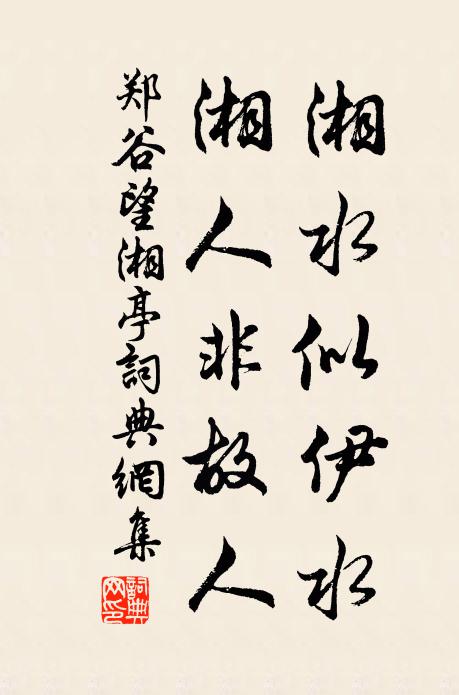 湘水似伊水
湘人非故人
郑谷望湘亭詞典網集
詞典網印